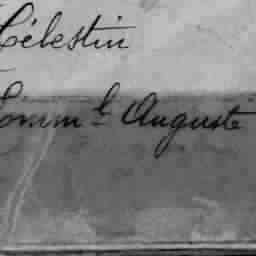 Célestin
Comm l Auguste